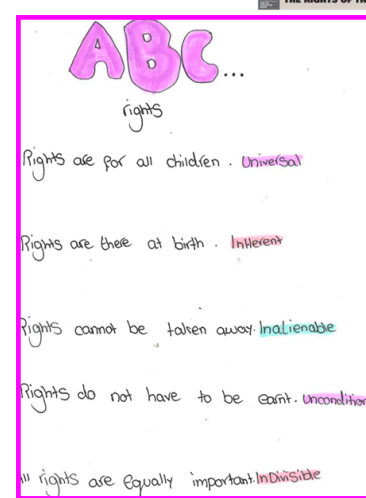 THE RIGHTS OF TH
ABC...
rights
Rights are for all children. Universal
Rights are there at birth. InHerent
Rights cannot be taken away. Inalienable
Rights do not have to be earnt. Uncondition
ll rights are Equally important. InDivisible